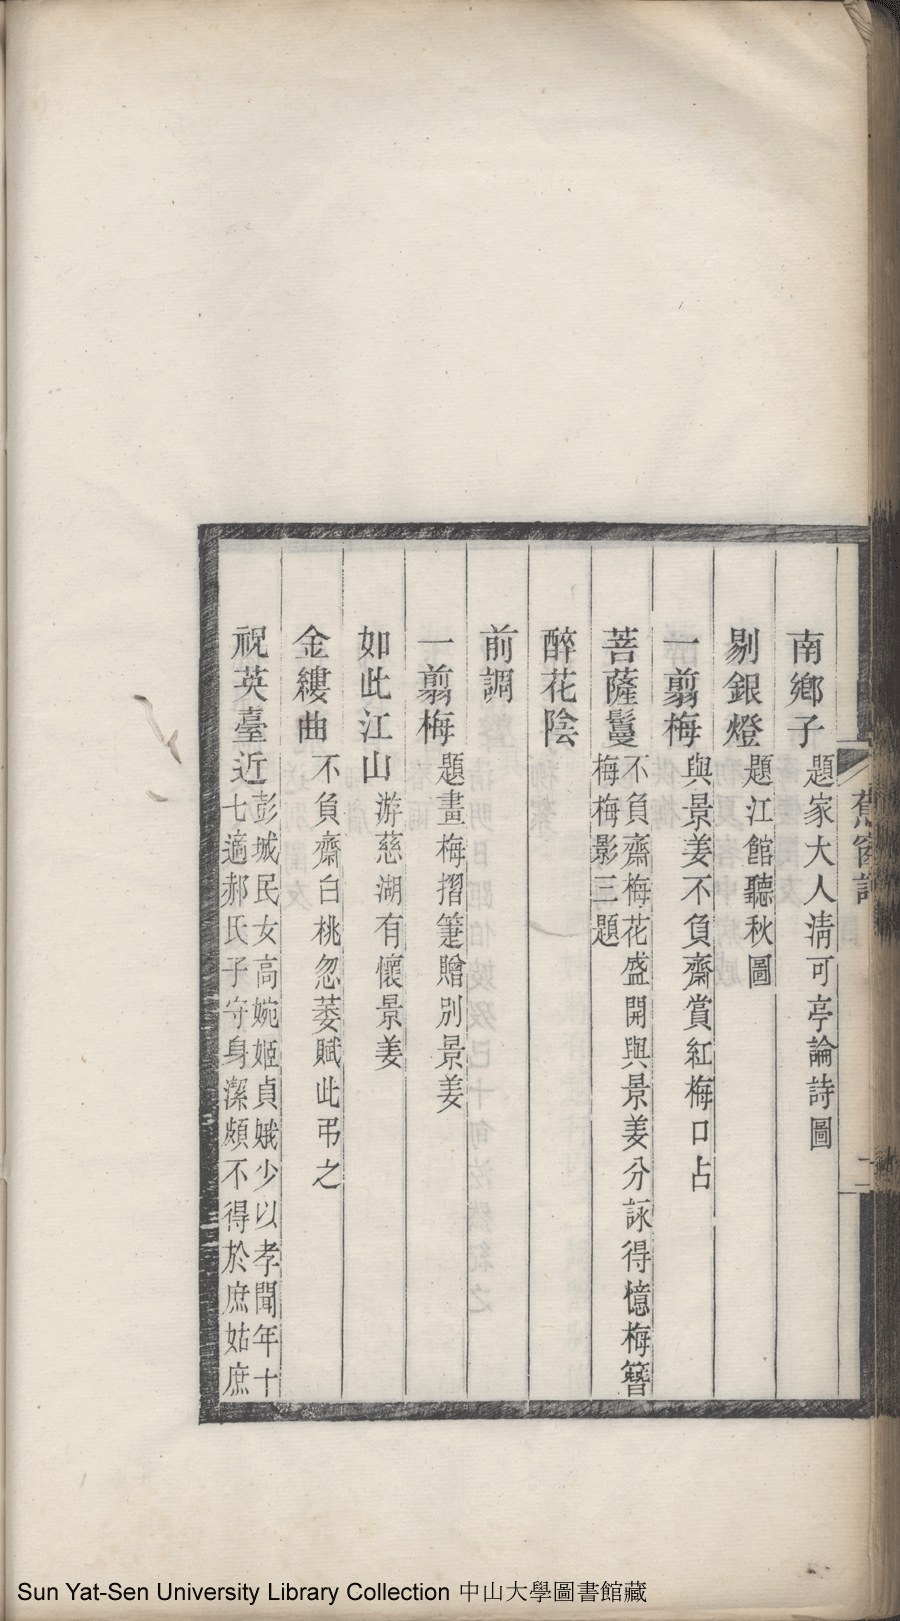 南鄉子 題家大人清可亭論詩圖
剔銀燈 題江館聽秋圖
一翦梅 與景姜不負齋賞紅梅口占
菩薩鬘 不負齋梅花盛開與景姜分詠得憶梅簪
梅梅影三題
醉花陰
前調
一翦梅 題畫梅摺箑贈別景姜
如此江山 游慈湖有懷景姜
金縷曲 不負齋白桃忽萎賦此弔之
祝英臺近 彭城民女高婉姬貞娥少以孝聞年十
七適郝氏子守身潔頗不得於庶姑庶
蕉窗詞
二
Sun Yat-Sen University Library Collection 中山大學圖書館藏